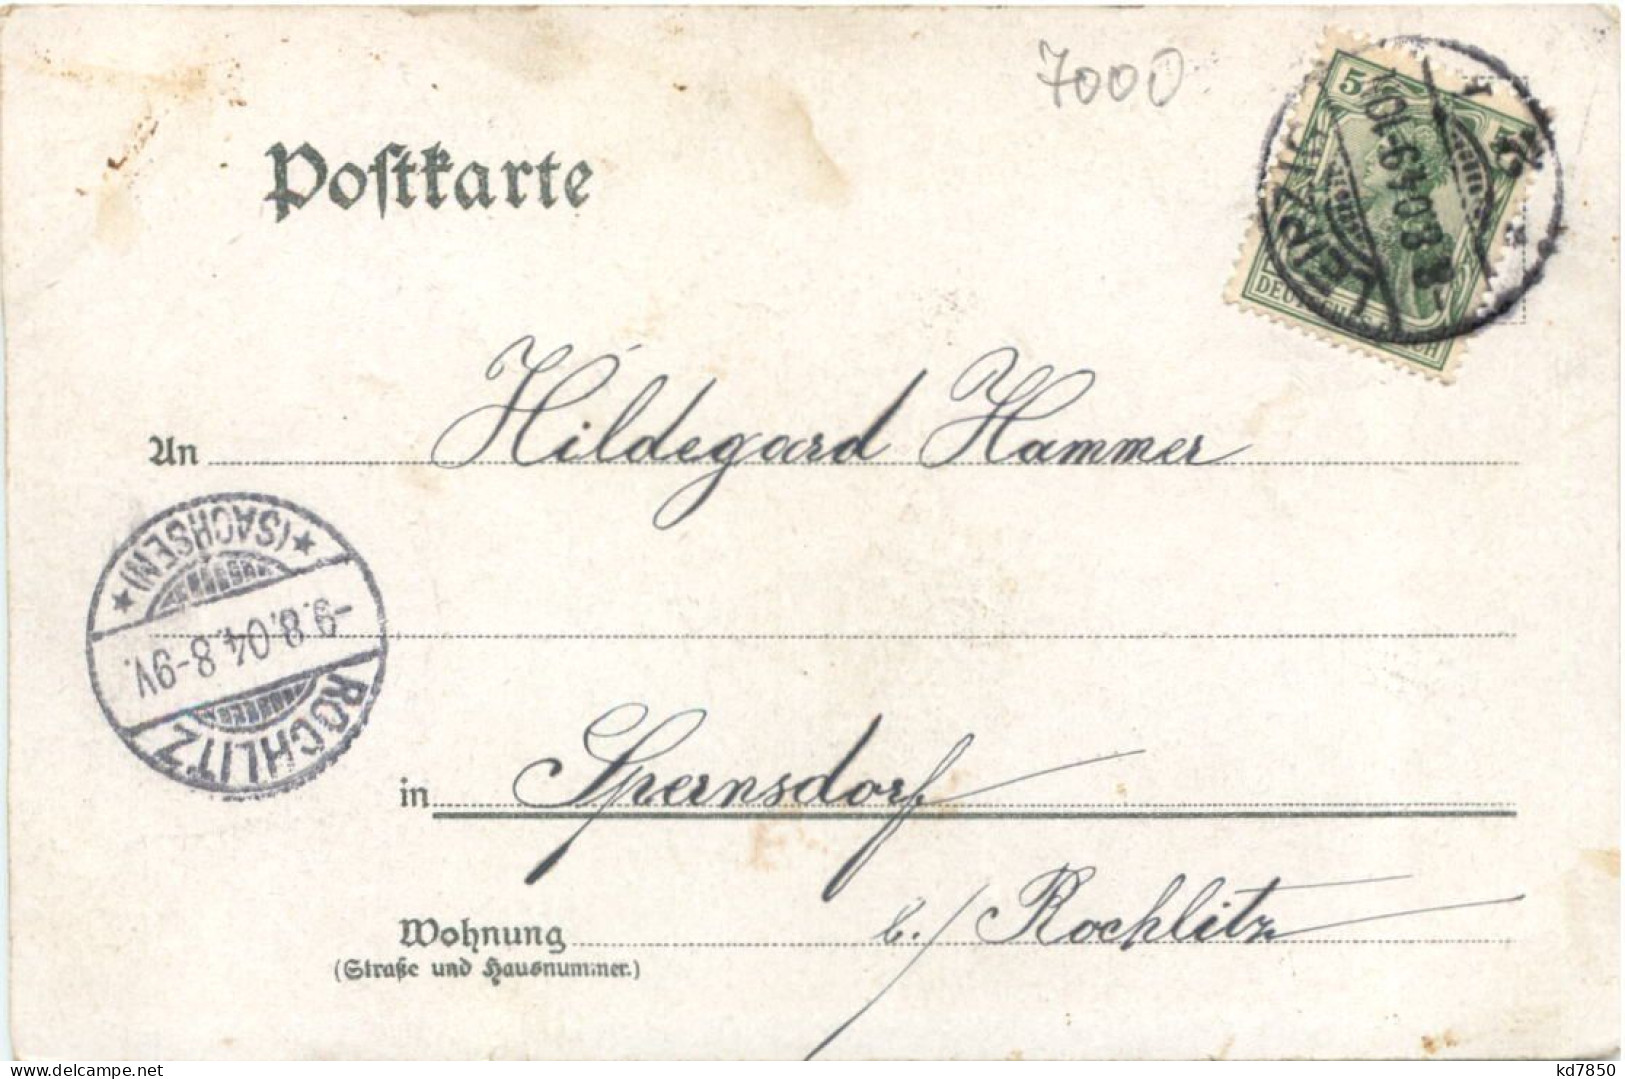 7000
Postkarte
5 5
DEUTSCHES REICH
LEIPZIG
2
An Hildegard Hammer
(SACHSEN)
-9.8.04. 8-9V.
ROCHLITZ
in Spernsdorf
b./ Rochlitz
Wohnung
(Straße und Hausnummer.)
kd7850